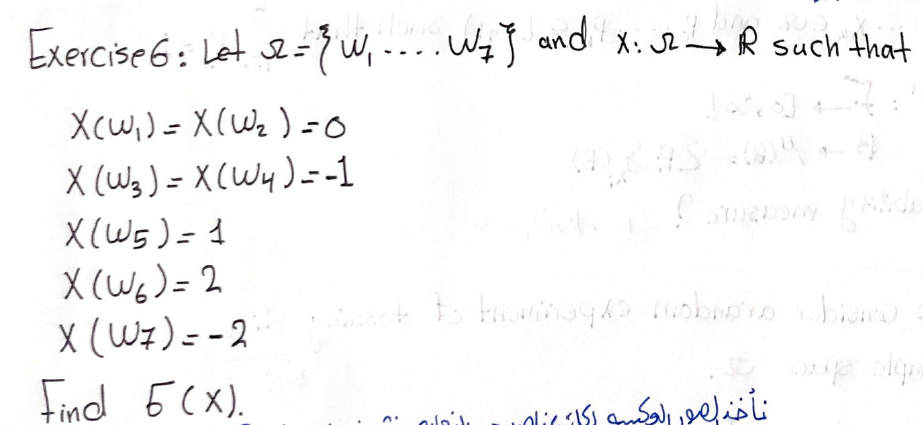 Exercise 6: Let Ω = {W₁ .... W₇} and X: Ω → ℝ such that
X(W₁) = X(W₂) = 0
X(W₃) = X(W₄) = -1
X(W₅) = 1
X(W₆) = 2
X(W₇) = -2
Find σ(X).
نأخذ الصور العكسية لكل